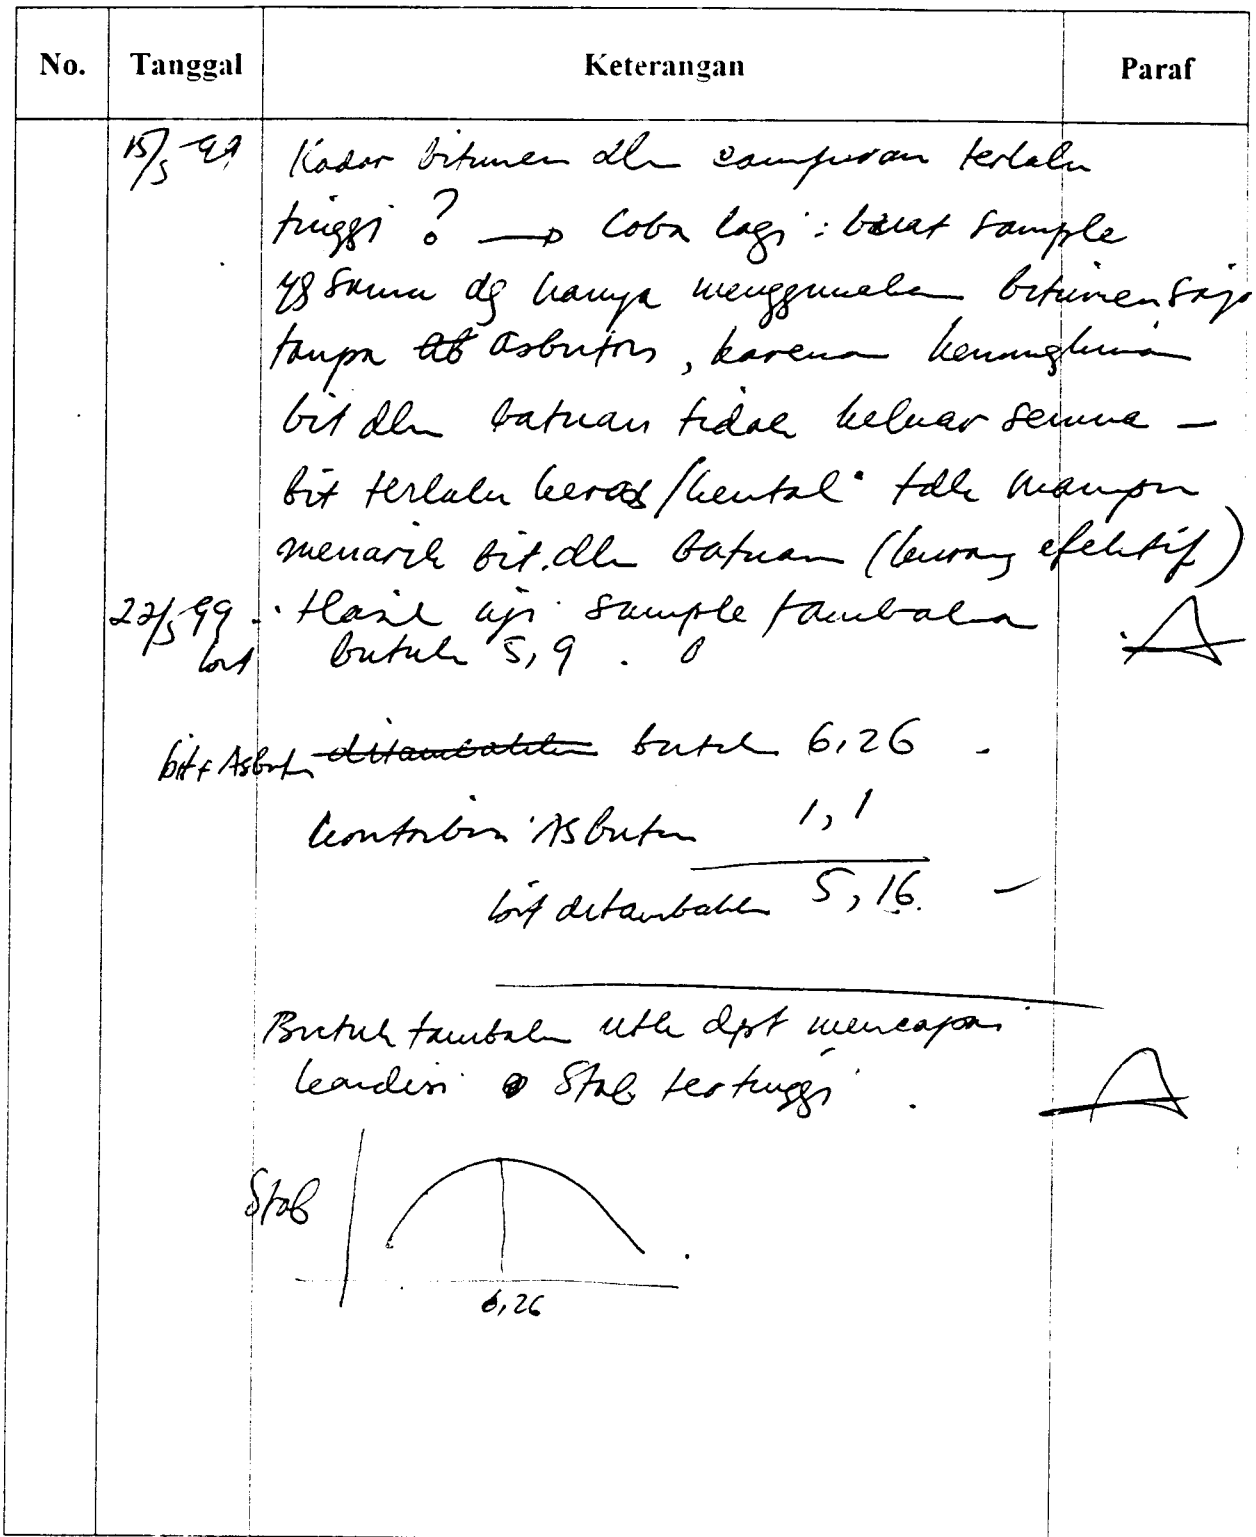 No. Tanggal Keterangan Paraf
15/5-99 Kadar bitumen dlm campuran terlalu
tinggi ? → Coba lagi : buat sample
yg sama dg hanya menggunakan bitumen saja
tanpa asbuton, karena kemungkinan
bit dlm batuan tidak keluar semua -
bit terlalu keras/kental tdk mampu
menarik bit. dlm batuan (kurang efektif)
22/5 99. Hasil uji sample tambahan
bit butuh 5,9 .
bit + Asbuton ditambahkan butuh 6,26 -
kontribusi Asbuton 1,1
bit ditambahkan 5,16. -
Butuh tambahan utk dpt mencapai
kondisi Stab tertinggi .
Stab
6,26